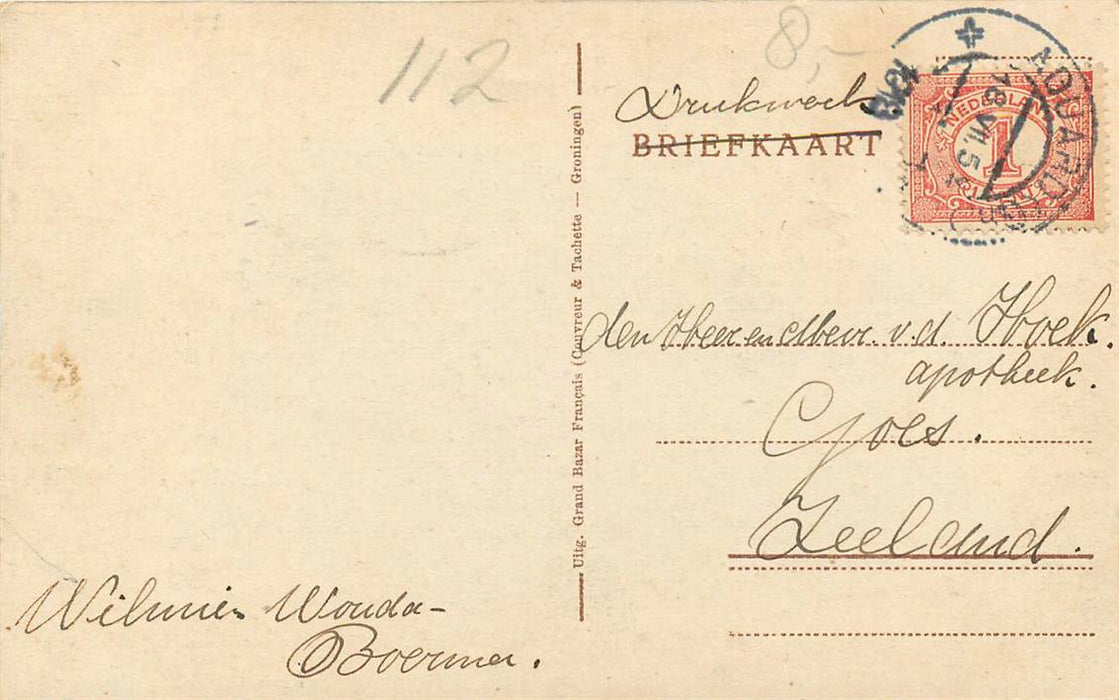 112
8,-
Drukwerk
BRIEFKAART
NEDERLAND
1
den Heer en Mevr. v. d. Hoek.
apotheek.
Goes.
Zeeland.
Uitg. Grand Bazar Français (Couvreur & Tachette — Groningen)
Wouda-
Boerma.